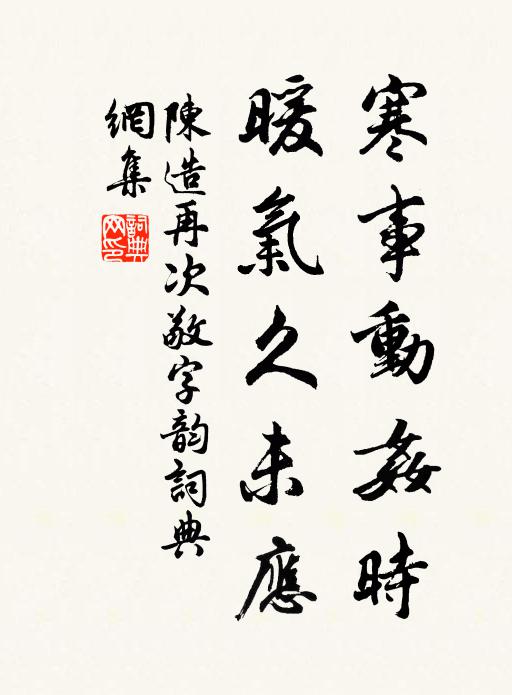 寒事動姦時
暖氣久未應
陳造再次敬字韵詞典
網集
詞典網印